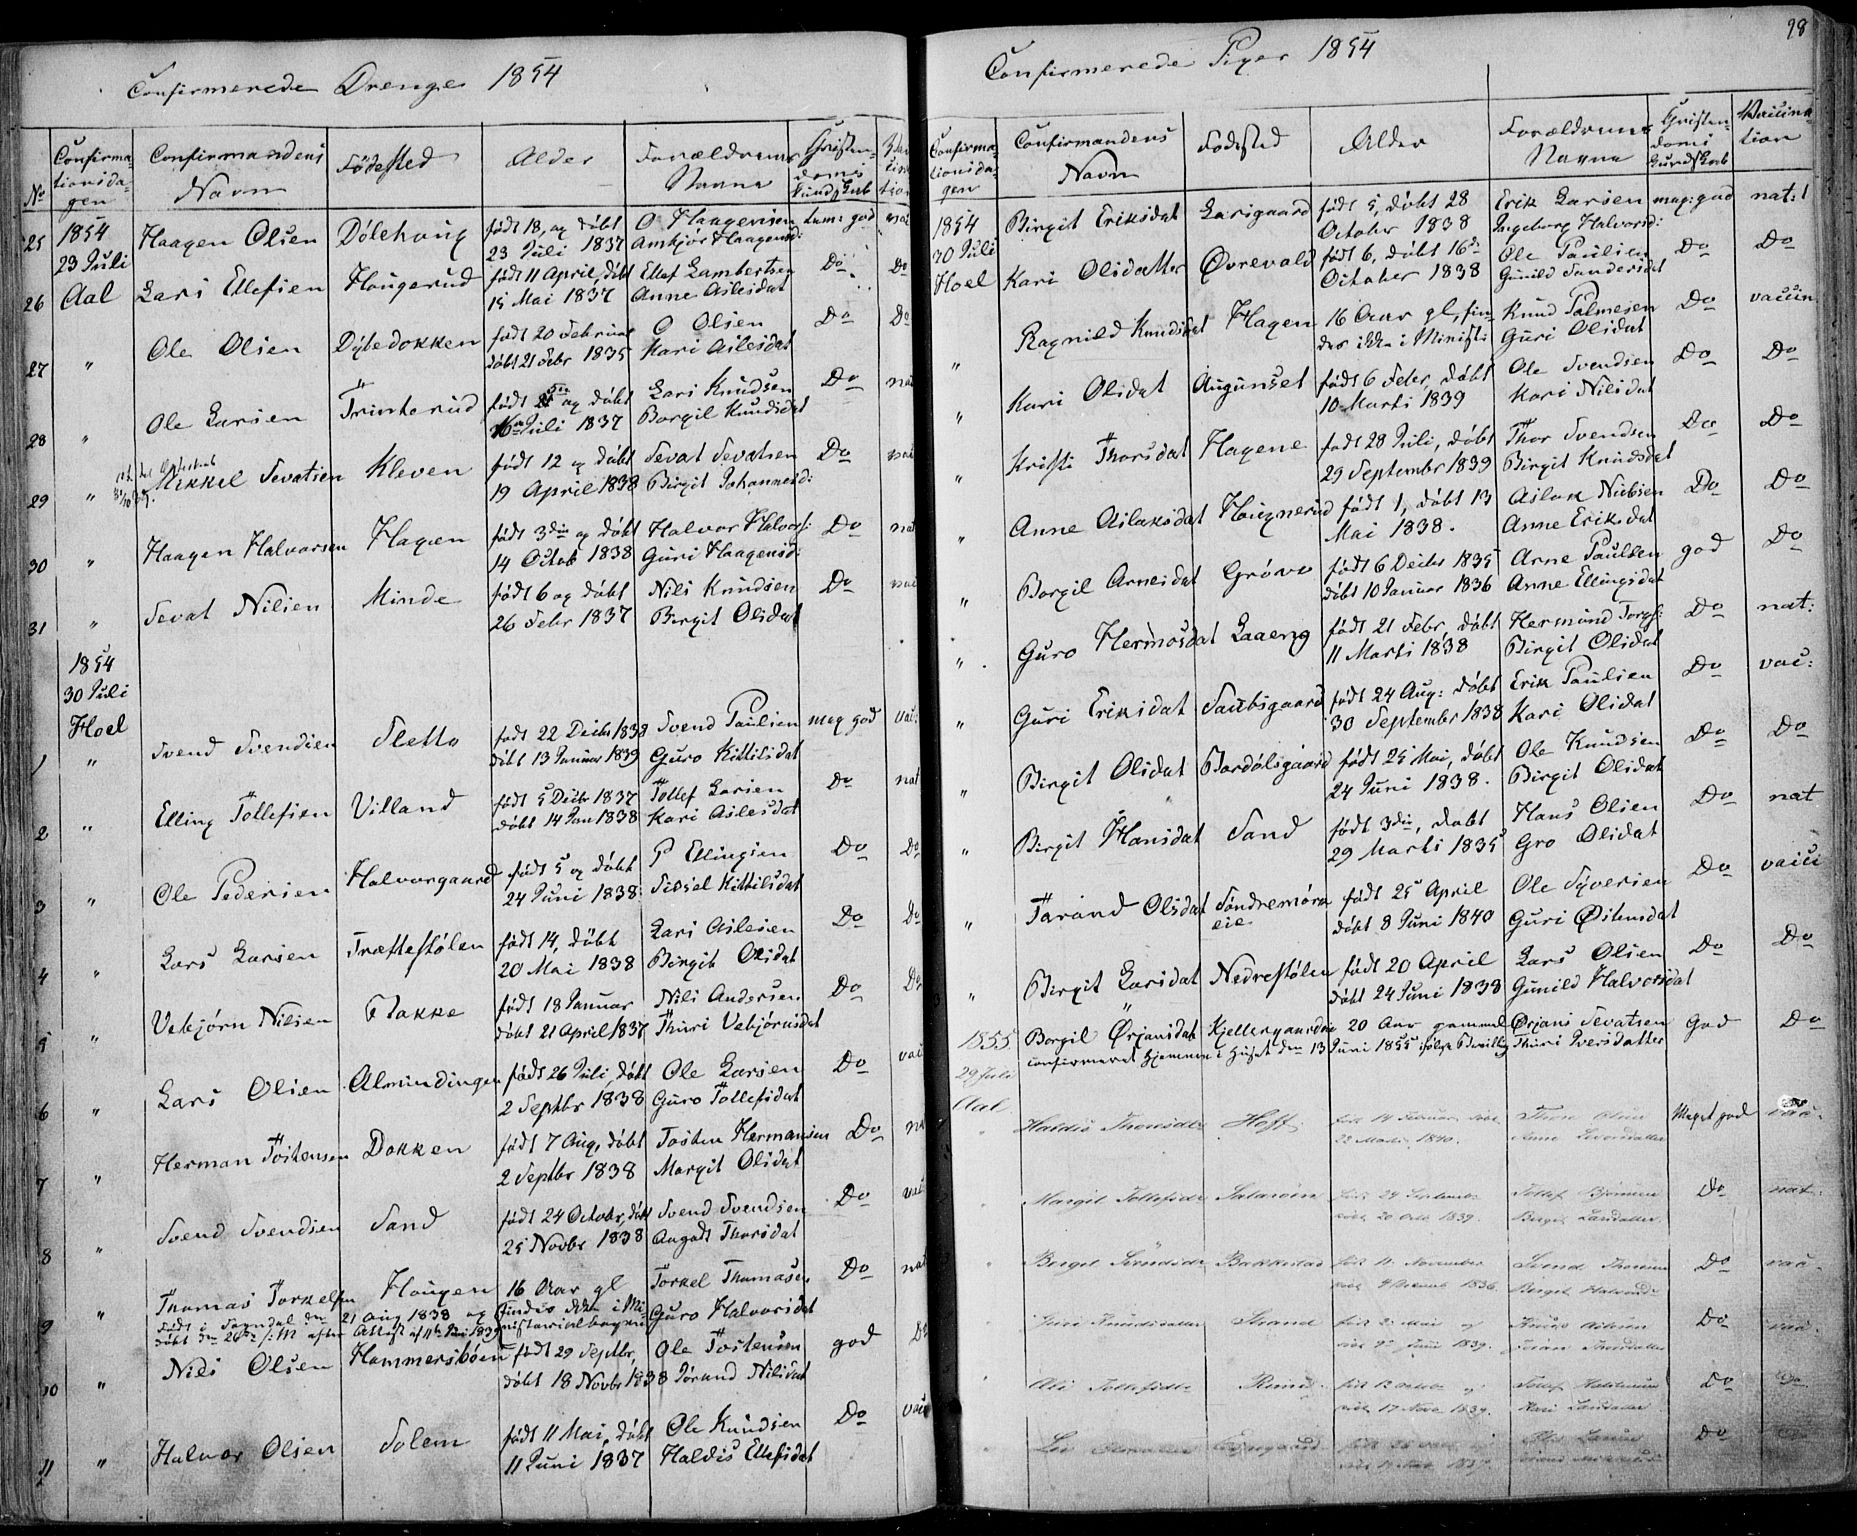 Confirmerede Drenge 1854
No
Confirma-
tionsda-
gen
Confirmandens
Navn
Fødested
Alder
Forældrenes
Navne
Christen-
doms
Kundskab
25 1854 Haagen Olsen Dölehaug født 18, og døbt O Haagensen tem: god
23 Juli 23 Juli 1837 Amkjör Haagensd:
26 Aal Lars Ellefsen Hougerud født 11 April, døbt Ellef Lambertsen Do Do
15 Mai 1837 Anne Aslesdat
27 " Ole Olsen Dybedokken født 20 Februar O Olsen Do Do
døbt 21 Febr 1835 Kari Aslesdat
28 " Ole Larsen Trinterud født og døbt Lars Knudsen Do nat
16de Juli 1837 Borgil Knudsdat
29 " Mikkel Sevatsen Kleven født 12 og døbt Sevat Sevatsen Do
19 April 1838 Birgit Johannesd:
30 " Haagen Halvorsen Hagen født 3die og døbt Halvor Halvors: Do nat
14 Octob 1838 Guri Haagensd:
31 " Sevat Nilsen Minde født 6 og døbt Nils Knudsen Do
26 Febr 1837 Birgit Olsdat
1854
30 Juli
Hoel
1 " Svend Svendsen Sletto født 22 Decbr 1838 Svend Paulsen meg god vac:
døbt 13 Januar 1839 Guro Kittilsdat
2 " Elling Tollefsen Villand født 5 Decbr 1837 Tollef Larsen Do nat
døbt 14 Jan 1838 Kari Aslesdat
3 " Ole Pedersen Halvorgaard født 5 og døbt P Ellingsen Do Do
24 Juni 1838 Sissel Kittilsdat
4 " Lars Larsen Trættestølen født 14, døbt Lars Aslesen Do Do
20 Mai 1838 Birgit Olsdat
5 " Vebjørn Nilsen født 18 Januar Nils Andersen Do Do
døbt 21 April 1837 Thuri Vebjørnsdat
6 " Lars Olsen Almindingen født 26 Juli, døbt Ole Larsen Do vac
2 Septbr 1838 Guro Tollefsdat
7 " Herman Tostensen Dokken født 7 Aug, døbt Tosten Hermansen Do
2 Septbr 1838 Margit Olsdat
8 " Svend Svendsen Sand født 24 Octobr, døbt Svend Svendsen Do
25 Novbr 1838 Angodt Thorsdat
9 " Thomas Torkelsen Hougen 16 Aar gl Torkel Thomasen Do nat
født i Sogndal den 21 Aug 1838 og findes ikke i Mi- Guro Halvorsdat
døbt den 26de s: M efter Attest af nisterialbogen
10 " Nils Olsen Hammersbøen født 29 Septbr, Ole Tostensen god Do
døbt 18 Novbr 1838 Jørand Nilsdat
11 " Halvor Olsen Solem født 11 Mai, døbt Ole Knudsen Do vac
11 Juni 1837 Haldis Ellefsdat
98
Confirmerede Piger 1854
Confirma-
tionsda-
gen
Confirmandens
Navn
Fødested
Alder
Forældrenes
Navne
Christen-
doms
Kundskab
Vaccina-
tion
1854 Birgit Eriksdat Larsgaard født 5, døbt 28 Erik Larsen meg: god nat:
30 Juli October 1838 Ingeborg Halvorsd:
Hoel Kari Olsdatter Øvrevold født 6, døbt 16de Ole Paulsen Do Do
October 1838 Gunild Sandersdat
" Ragnild Knudsdat Hagen 16 Aar gl, fin- Knud Palmesen Do vaccin
des ikke i Minist: Guri Olsdat
" Kari Olsdat Augunset født 6 Febr, døbt Ole Svendsen Do Do
10 Marts 1839 Kari Nilsdat
" Kristi Thorsdat Hagene født 28 Juli, døbt Thor Svendsen Do Do
29 September 1839 Birgit Knudsdat
" Anne Ailaksdat Hougnerud født 1, døbt 13 Ailak Nubsen Do Do
Mai 1838. Anne Eriksdat
" Borgil Arnesdat Gröve født 6 Decbr 1835 Arne Paulsen god Do
døbt 10 Januar 1836 Anne Ellingsdat
" Guro Hermosdat Laaeng født 21 Febr, døbt Hermund Torgs: Do nat:
11 Marts 1838 Birgit Olsdat
" Guri Eriksdat Saubsgaard født 24 Aug: døbt Erik Paulsen Do vac:
30 September 1838 Kari Olsdat
" Birgit Olsdat Bardölsgaard født 25 Mai, døbt Ole Knudsen Do Do
24 Juni 1838. Birgit Olsdat
" Birgit Hansdat Sand født 3die, døbt Hans Olsen Do nat
29 Marts 1835 Gro Olsdat
" Tarand Olsdat Söndremöra født 25 April Ole Syversen Do vacci
eie døbt 8 Juni 1840 Guri Østensdat
" Birgit Larsdat Nedrestølen født 20 April Lars Olsen Do Do
døbt 24 Juni 1838 Gunild Halvorsdat
1855 Borgil Ørjansdat Kjellergaardeie 20 Aar gammel Ørjans Sevatsen God Do
confirmeret hjemme i Huset den 13 Juni 1855 ifølge Thuri Iversdatter
29 Juli
Aal
Haldis Thorsdtr Hoff Meget god vac:
22 Marts 1840.
Margit Tollefsdtr født 29 September Tollef Do nat:
døbt 20 Octb 1839. Birgit Larsdatter
Birgit Svendsdtr Bakkestad født 11 November Svend Do vac.
1836. Birgit
Guri Knudsdatter Strand født 2 Mai og Do vac:
døbt 9de Juni 1839.
Tollefsdtr Do Do
døbt 17 Novb 1839. Kari Larsdatter
Do